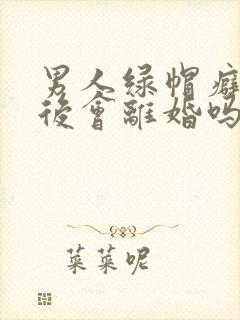 男人绿帽癖
後會離婚吗
菜菜呢